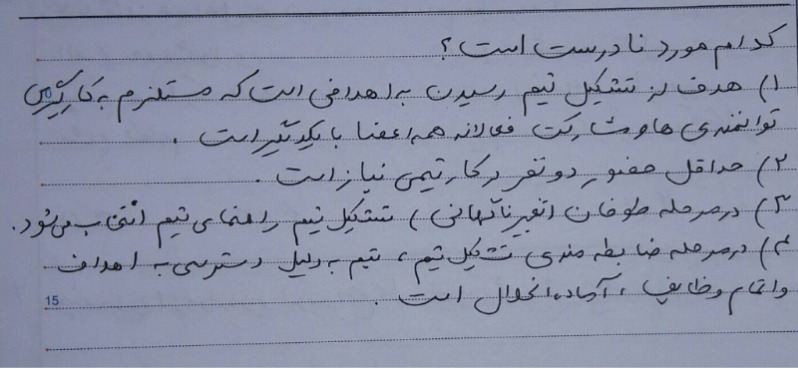 کدام مورد نادرست است؟
۱) هدف از تشکیل تیم رسیدن به اهدافی است که مستلزم به کارگیری
توانمندی ها و مشارکت فعالانه همه اعضا با یکدیگر است .
۲) حداقل حضور دو نفر در کار تیمی نیاز است .
۳) در مرحله طوفان (تغییر ناگهانی) تشکیل تیم راهنمای تیم انتخاب می شود.
۴) در مرحله ضابطه مندی تشکیل تیم، تیم به دلیل دسترسی به اهداف
و اتمام وظایف، آماده انحلال است .
15